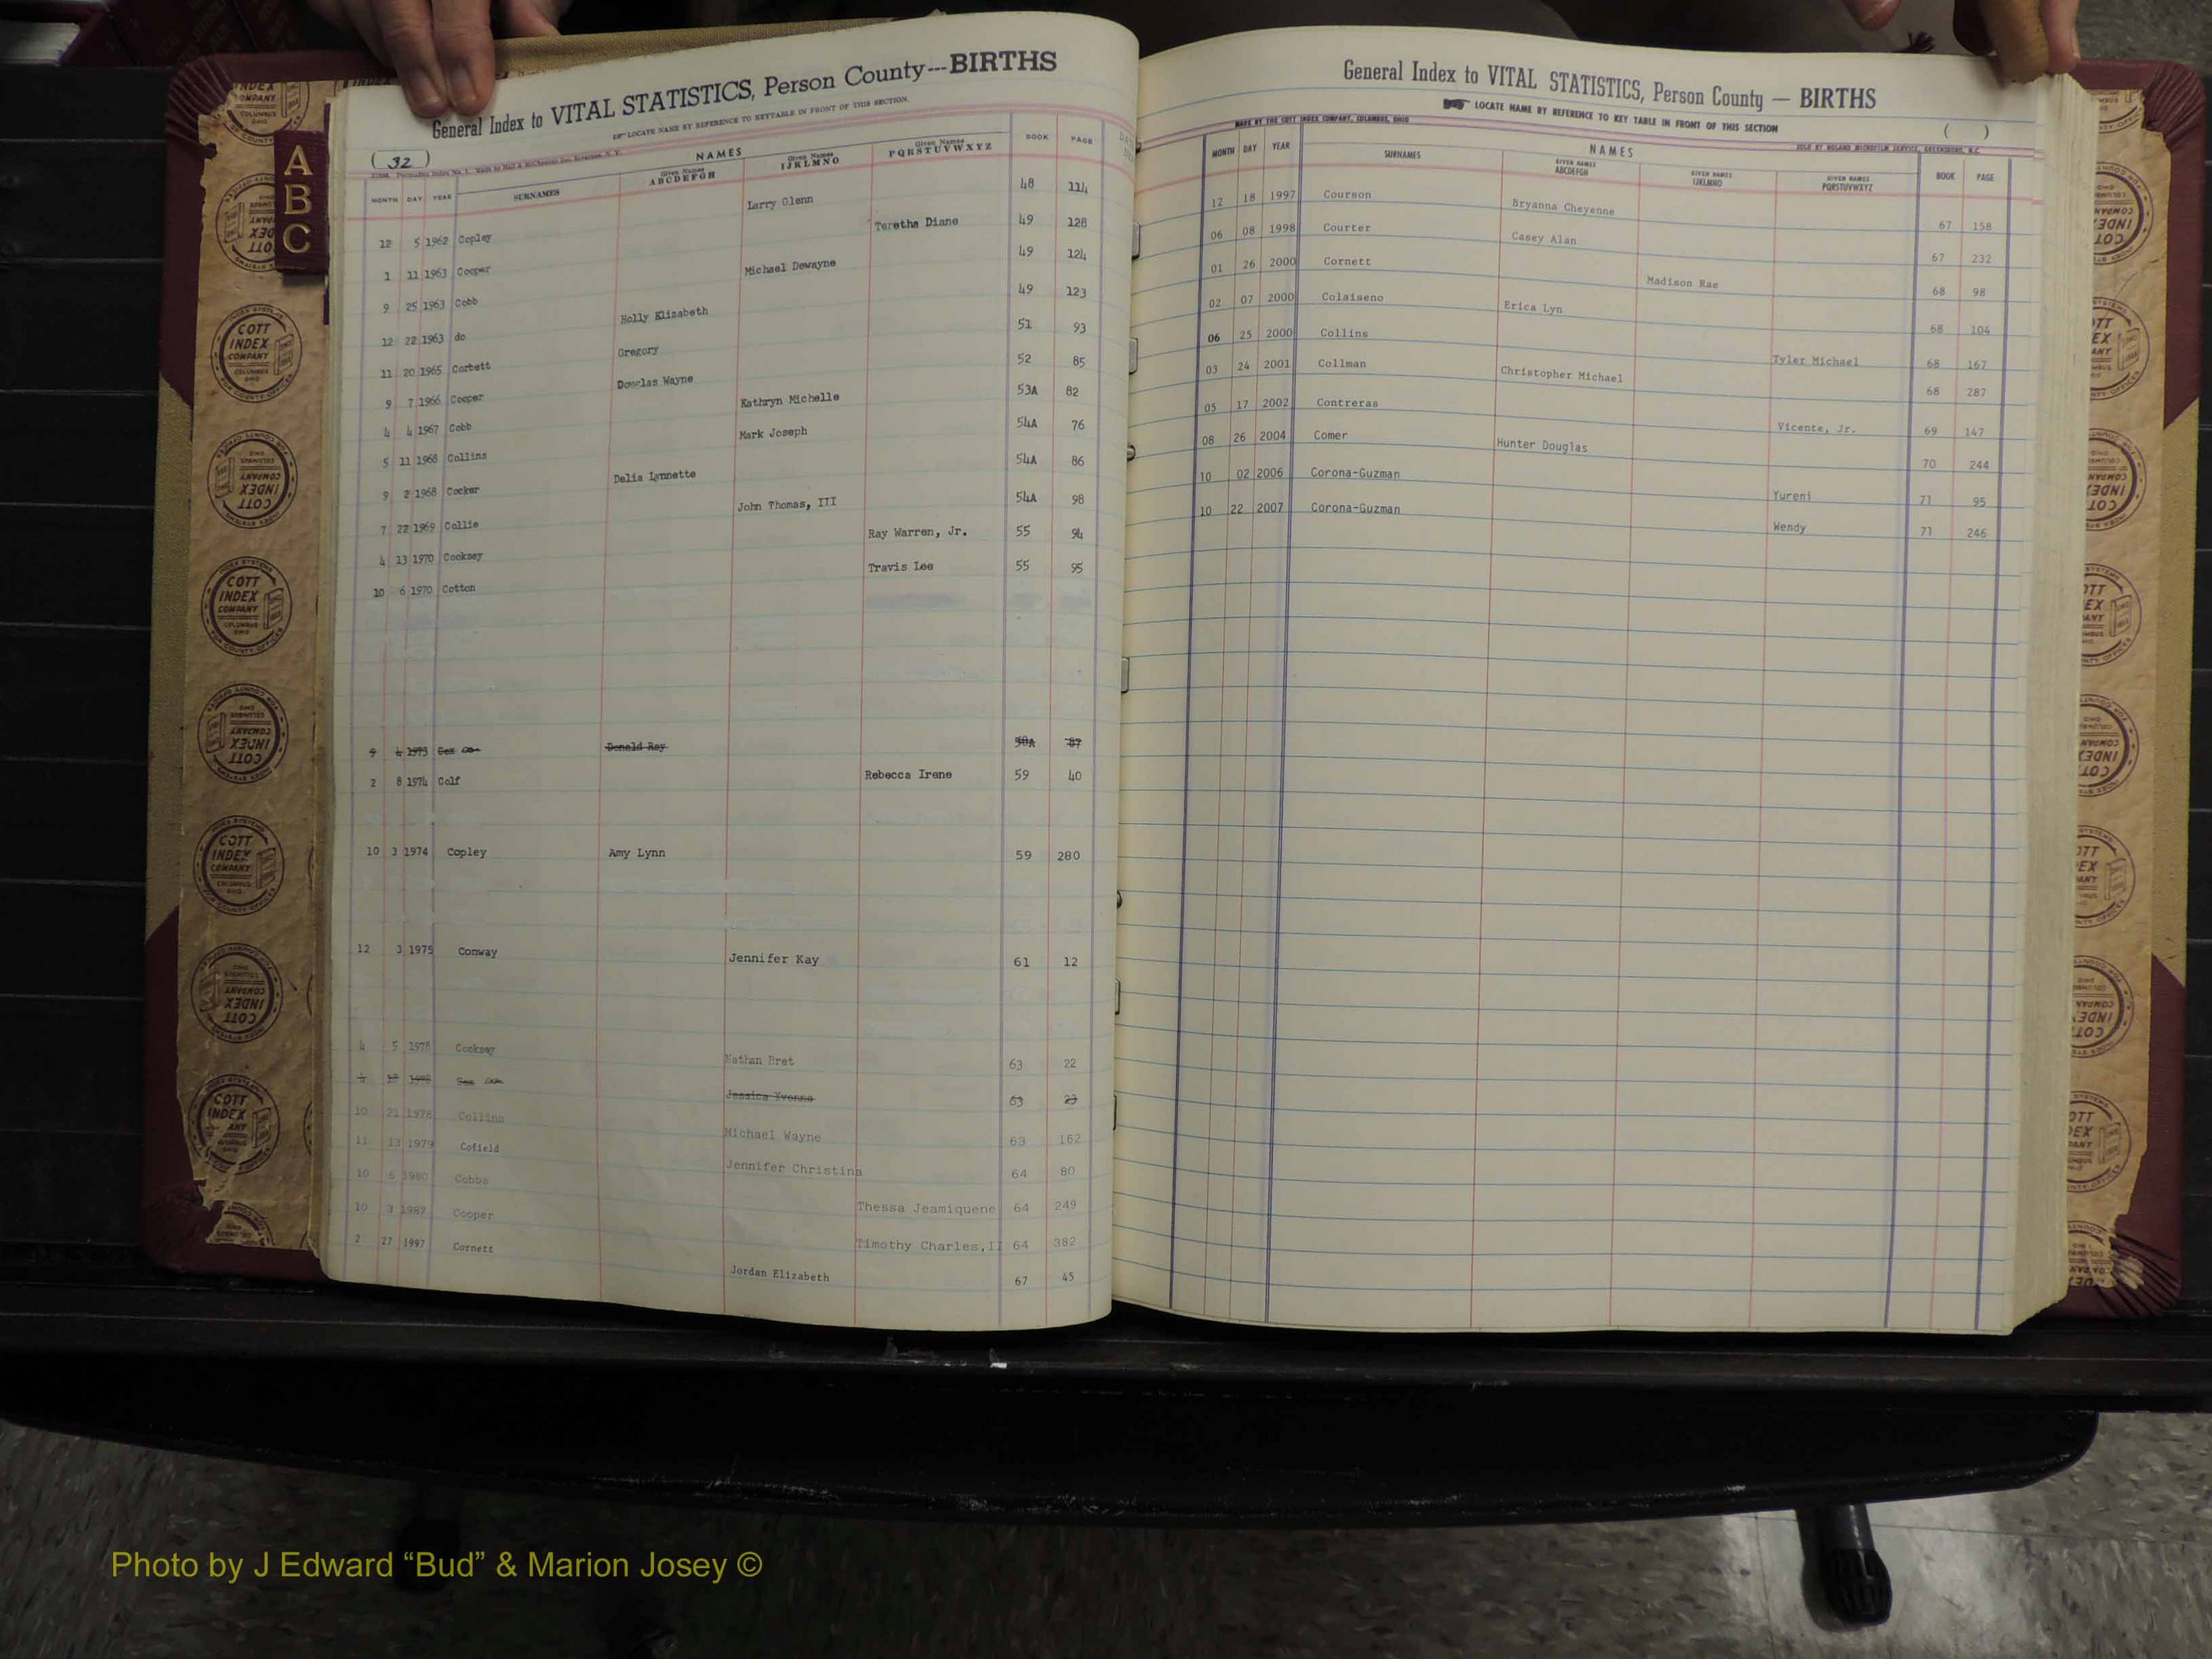 General Index to VITAL STATISTICS, Person County---BIRTHS
LOCATE NAME BY REFERENCE TO KEYTABLE IN FRONT OF THIS SECTION.
( 32 )
NAMES
MONTH DAY YEAR SURNAMES Given Names ABCDEFGH Given Names IJKLMNO Given Names PQRSTUVWXYZ BOOK PAGE
12 5 1962 Copley Larry Glenn 48 114
1 11 1963 Cooper Teretha Diane 49 128
9 25 1963 Cobb Michael Dewayne 49 124
12 22 1963 do Holly Elizabeth 49 123
11 20 1965 Corbett Gregory 51 93
9 7 1966 Cooper Douglas Wayne 52 85
4 4 1967 Cobb Kathryn Michelle 53A 82
5 11 1968 Collins Mark Joseph 54A 76
9 2 1968 Cocker Delia Lynnette 54A 86
7 22 1969 Collie John Thomas, III 54A 98
4 13 1970 Cooksey Ray Warren, Jr. 55 94
10 6 1970 Cotton Travis Lee 55 95
9 4 1973 Donald Ray 58A 87
2 8 1974 Colf Rebecca Irene 59 40
10 3 1974 Copley Amy Lynn 59 280
12 3 1975 Conway Jennifer Kay 61 12
4 5 1978 Cooksey Nathan Bret 63 22
1978 Jessica Yvonne 63 23
10 21 1978 Collins Michael Wayne 63 162
11 13 1979 Cofield Jennifer Christina 64 80
10 6 1980 Cobbs Thessa Jeamiquene 64 249
10 3 1987 Cooper Timothy Charles,II 64 382
2 27 1997 Cornett Jordan Elizabeth 67 45
General Index to VITAL STATISTICS, Person County — BIRTHS
LOCATE NAME BY REFERENCE TO KEY TABLE IN FRONT OF THIS SECTION
( )
MADE BY THE COTT INDEX COMPANY, COLUMBUS, OHIO
SOLD BY ROLAND MICROFILM SERVICE, GREENSBORO, N.C.
NAMES
MONTH DAY YEAR SURNAMES GIVEN NAMES ABCDEFGH GIVEN NAMES IJKLMNO GIVEN NAMES PQRSTUVWXYZ BOOK PAGE
12 18 1997 Courson Bryanna Cheyenne 67 158
06 08 1998 Courter Casey Alan 67 232
01 26 2000 Cornett Madison Rae 68 98
02 07 2000 Colaiseno Erica Lyn 68 104
06 25 2000 Collins Tyler Michael 68 167
03 24 2001 Collman Christopher Michael 68 287
05 17 2002 Contreras Vicente, Jr. 69 147
08 26 2004 Comer Hunter Douglas 70 244
10 02 2006 Corona-Guzman Yureni 71 95
10 22 2007 Corona-Guzman Wendy 71 246
A
B
C
COTT
INDEX
COMPANY
COLUMBUS
OHIO
Photo by J Edward “Bud” & Marion Josey ©